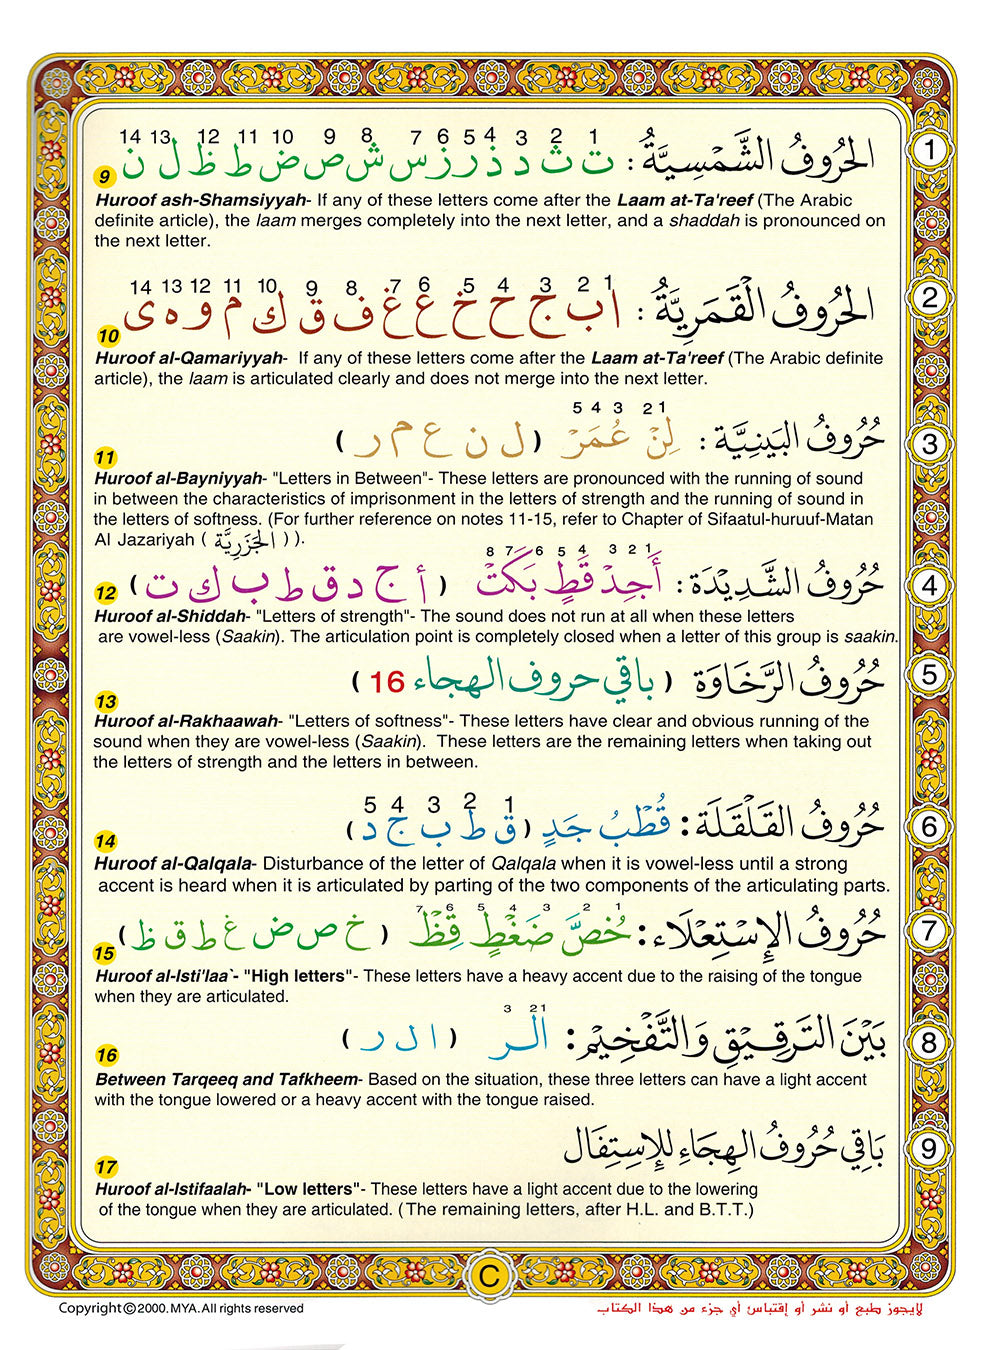 الحُرُوفُ الشَّمْسِيَّةُ : ت ث د ذ ر ز س ش ص ض ط ظ ل ن
1 2 3 4 5 6 7 8 9 10 11 12 13 14
1
9
Huroof ash-Shamsiyyah- If any of these letters come after the Laam at-Ta'reef (The Arabic
definite article), the laam merges completely into the next letter, and a shaddah is pronounced on
the next letter.
الحُرُوفُ الْقَمَرِيَّةُ : ا ب ج ح خ ع غ ف ق ك م و ه ى
1 2 3 4 5 6 7 8 9 10 11 12 13 14
2
10
Huroof al-Qamariyyah- If any of these letters come after the Laam at-Ta'reef (The Arabic definite
article), the laam is articulated clearly and does not merge into the next letter.
حُرُوفُ البَيْنِيَّة : لِنْ عُمَرْ ( ل ن ع م ر )
1 2 3 4 5
3
11
Huroof al-Bayniyyah- "Letters in Between"- These letters are pronounced with the running of sound
in between the characteristics of imprisonment in the letters of strength and the running of sound in
the letters of softness. (For further reference on notes 11-15, refer to Chapter of Sifaatul-huruuf-Matan
Al Jazariyah ( الجَزَرِيَّة ) ).
حُرُوفُ الشَّدِيْدَة : أَجِدْ قَطٍ بَكَتْ ( أ ج د ق ط ب ك ت )
1 2 3 4 5 6 7 8
4
12
Huroof al-Shiddah- "Letters of strength"- The sound does not run at all when these letters
are vowel-less (Saakin). The articulation point is completely closed when a letter of this group is saakin.
حُرُوفُ الرَّخَاوَة ( باقي حروف الهجاء 16 )
5
13
Huroof al-Rakhaawah- "Letters of softness"- These letters have clear and obvious running of the
sound when they are vowel-less (Saakin). These letters are the remaining letters when taking out
the letters of strength and the letters in between.
حُرُوفُ القَلْقَلَة : قُطْبُ جَدٍ ( ق ط ب ج د )
1 2 3 4 5
6
14
Huroof al-Qalqala- Disturbance of the letter of Qalqala when it is vowel-less until a strong
accent is heard when it is articulated by parting of the two components of the articulating parts.
حُرُوفُ الإِسْتِعْلَاء : خُصَّ ضَغْطٍ قِظْ ( خ ص ض غ ط ق ظ )
1 2 3 4 5 6 7
7
15
Huroof al-Isti'laa`- "High letters"- These letters have a heavy accent due to the raising of the tongue
when they are articulated.
بَيْنَ التَرقِيْقِ وَالتَّفْخِيْم : الر ( ا ل ر )
1 2 3
8
16
Between Tarqeeq and Tafkheem- Based on the situation, these three letters can have a light accent
with the tongue lowered or a heavy accent with the tongue raised.
بَاقِي حُرُوفُ الهِجَاءِ لِلإِسْتِفَال
9
17
Huroof al-Istifaalah- "Low letters"- These letters have a light accent due to the lowering
of the tongue when they are articulated. (The remaining letters, after H.L. and B.T.T.)
C
Copyright©2000. MYA. All rights reserved
لايجوز طبع أو نشر أو إقتباس أي جزء من هذا الكتاب